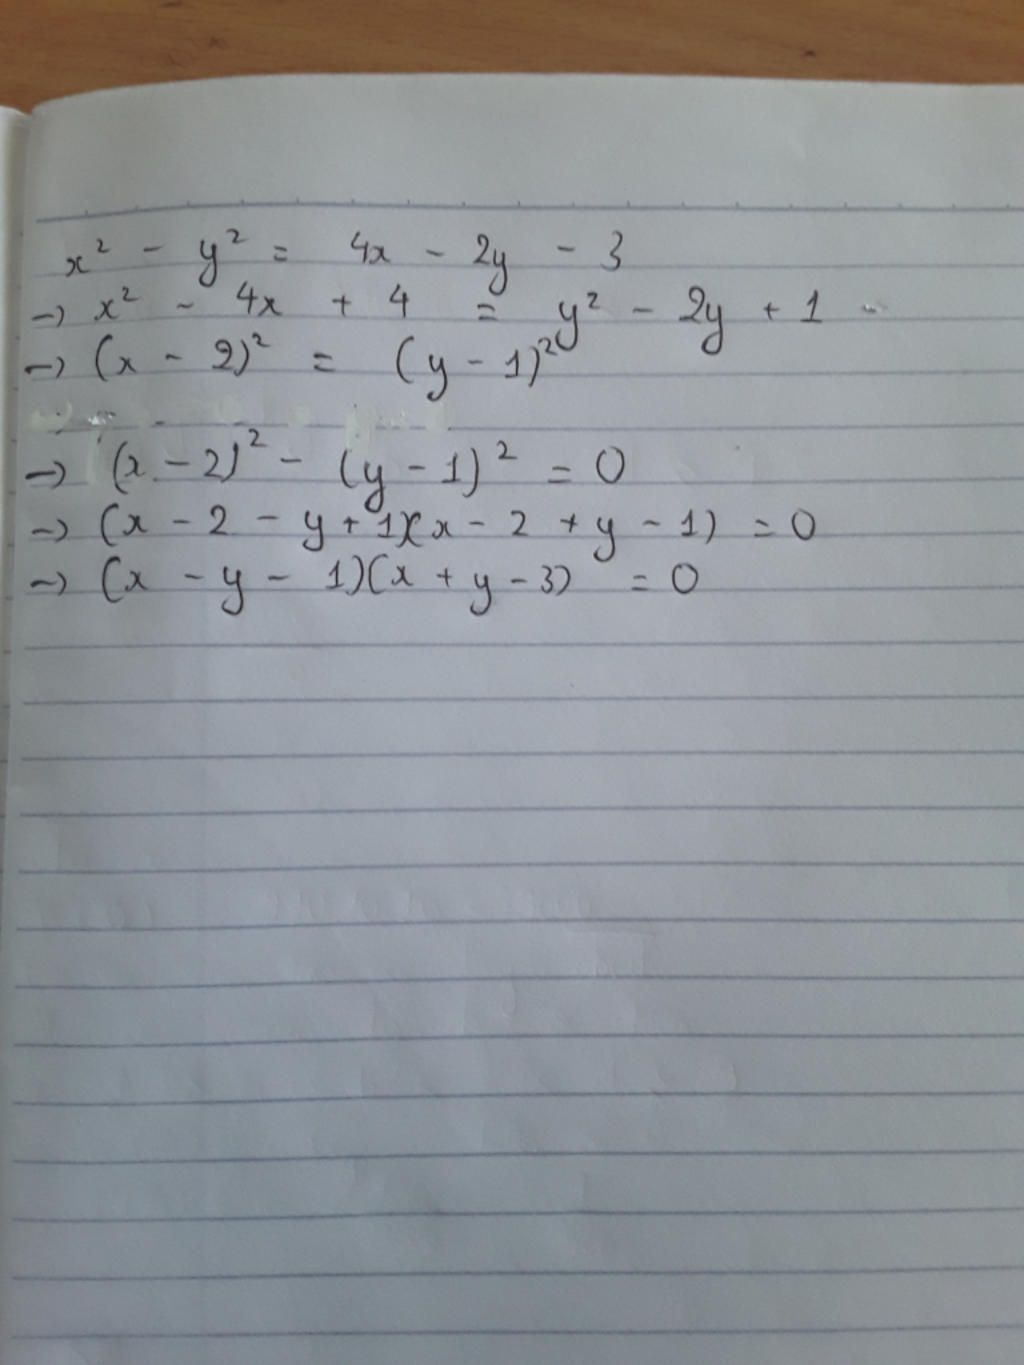 x² - y² = 4x - 2y - 3
→ x² - 4x + 4 = y² - 2y + 1
→ (x - 2)² = (y - 1)²
→ (x - 2)² - (y - 1)² = 0
→ (x - 2 - y + 1)(x - 2 + y - 1) = 0
→ (x - y - 1)(x + y - 3) = 0